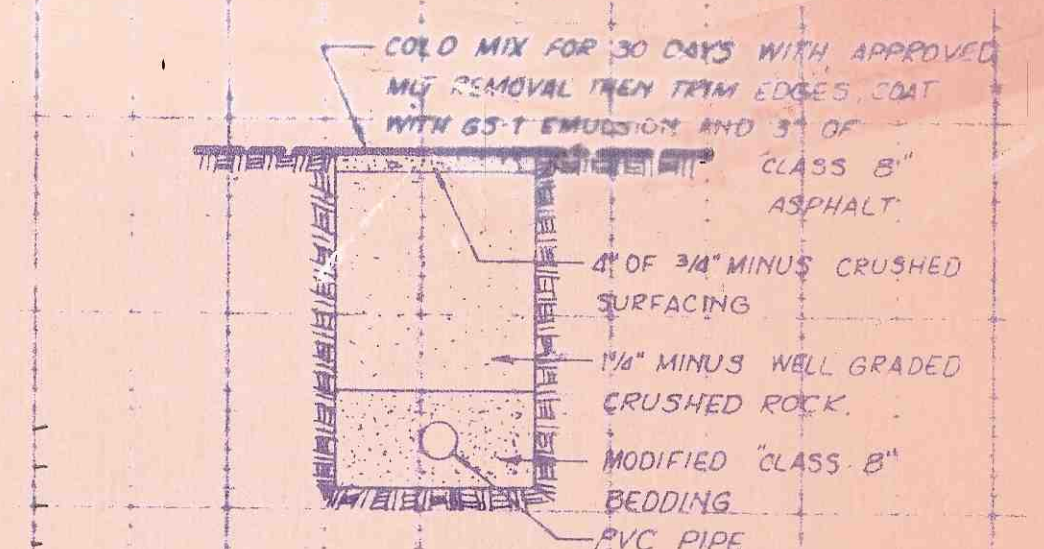 COLD MIX FOR 30 DAYS WITH APPROVED
REMOVAL THEN TRIM EDGES, COAT
WITH EMULSION AND 3" OF
"CLASS B"
ASPHALT.
4" OF 3/4" MINUS CRUSHED
SURFACING
1 1/4" MINUS WELL GRADED
CRUSHED ROCK.
MODIFIED "CLASS B"
BEDDING
PVC PIPE